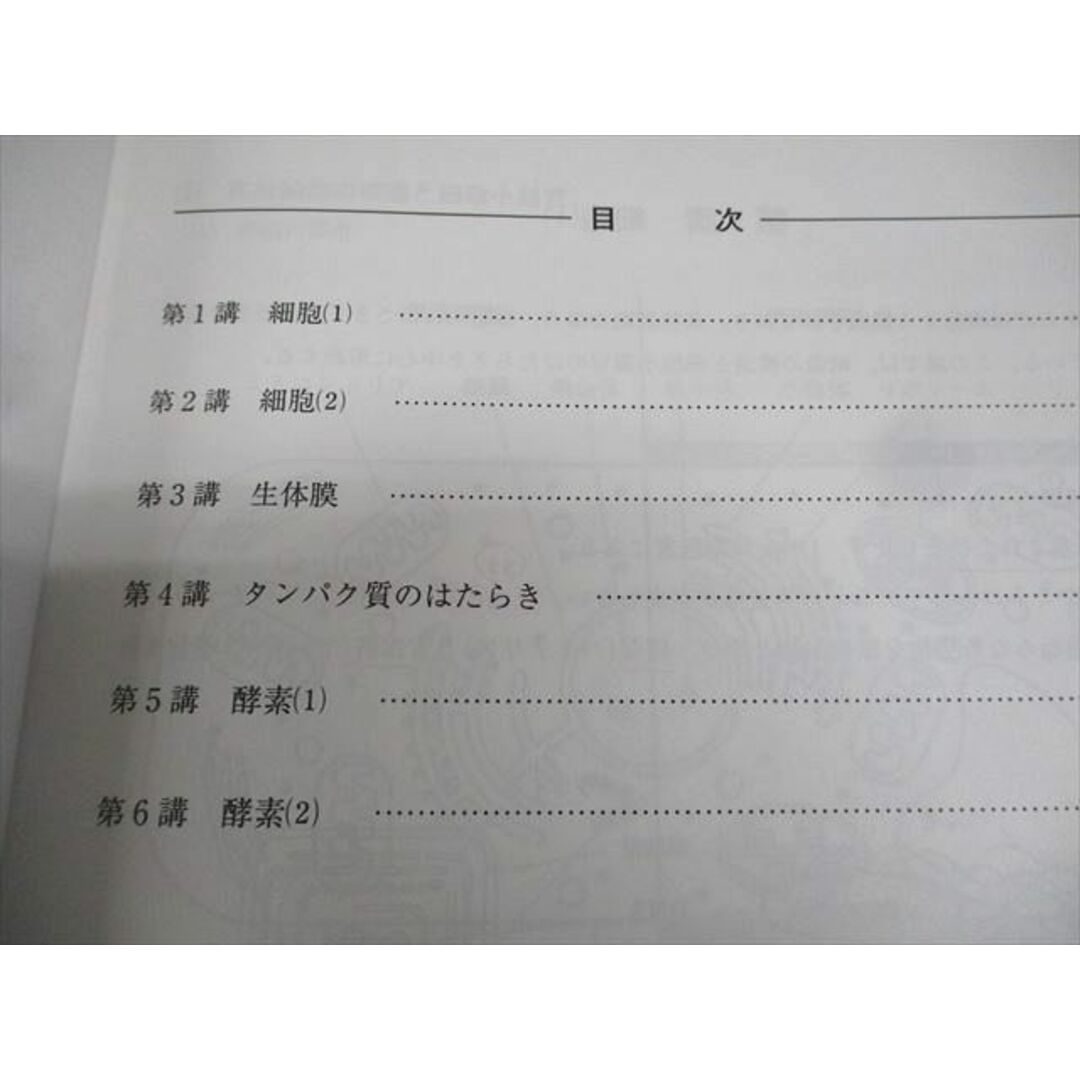 目 次
第1講 細胞(1)
第2講 細胞(2)
第3講 生体膜
第4講 タンパク質のはたらき
第5講 酵素(1)
第6講 酵素(2)